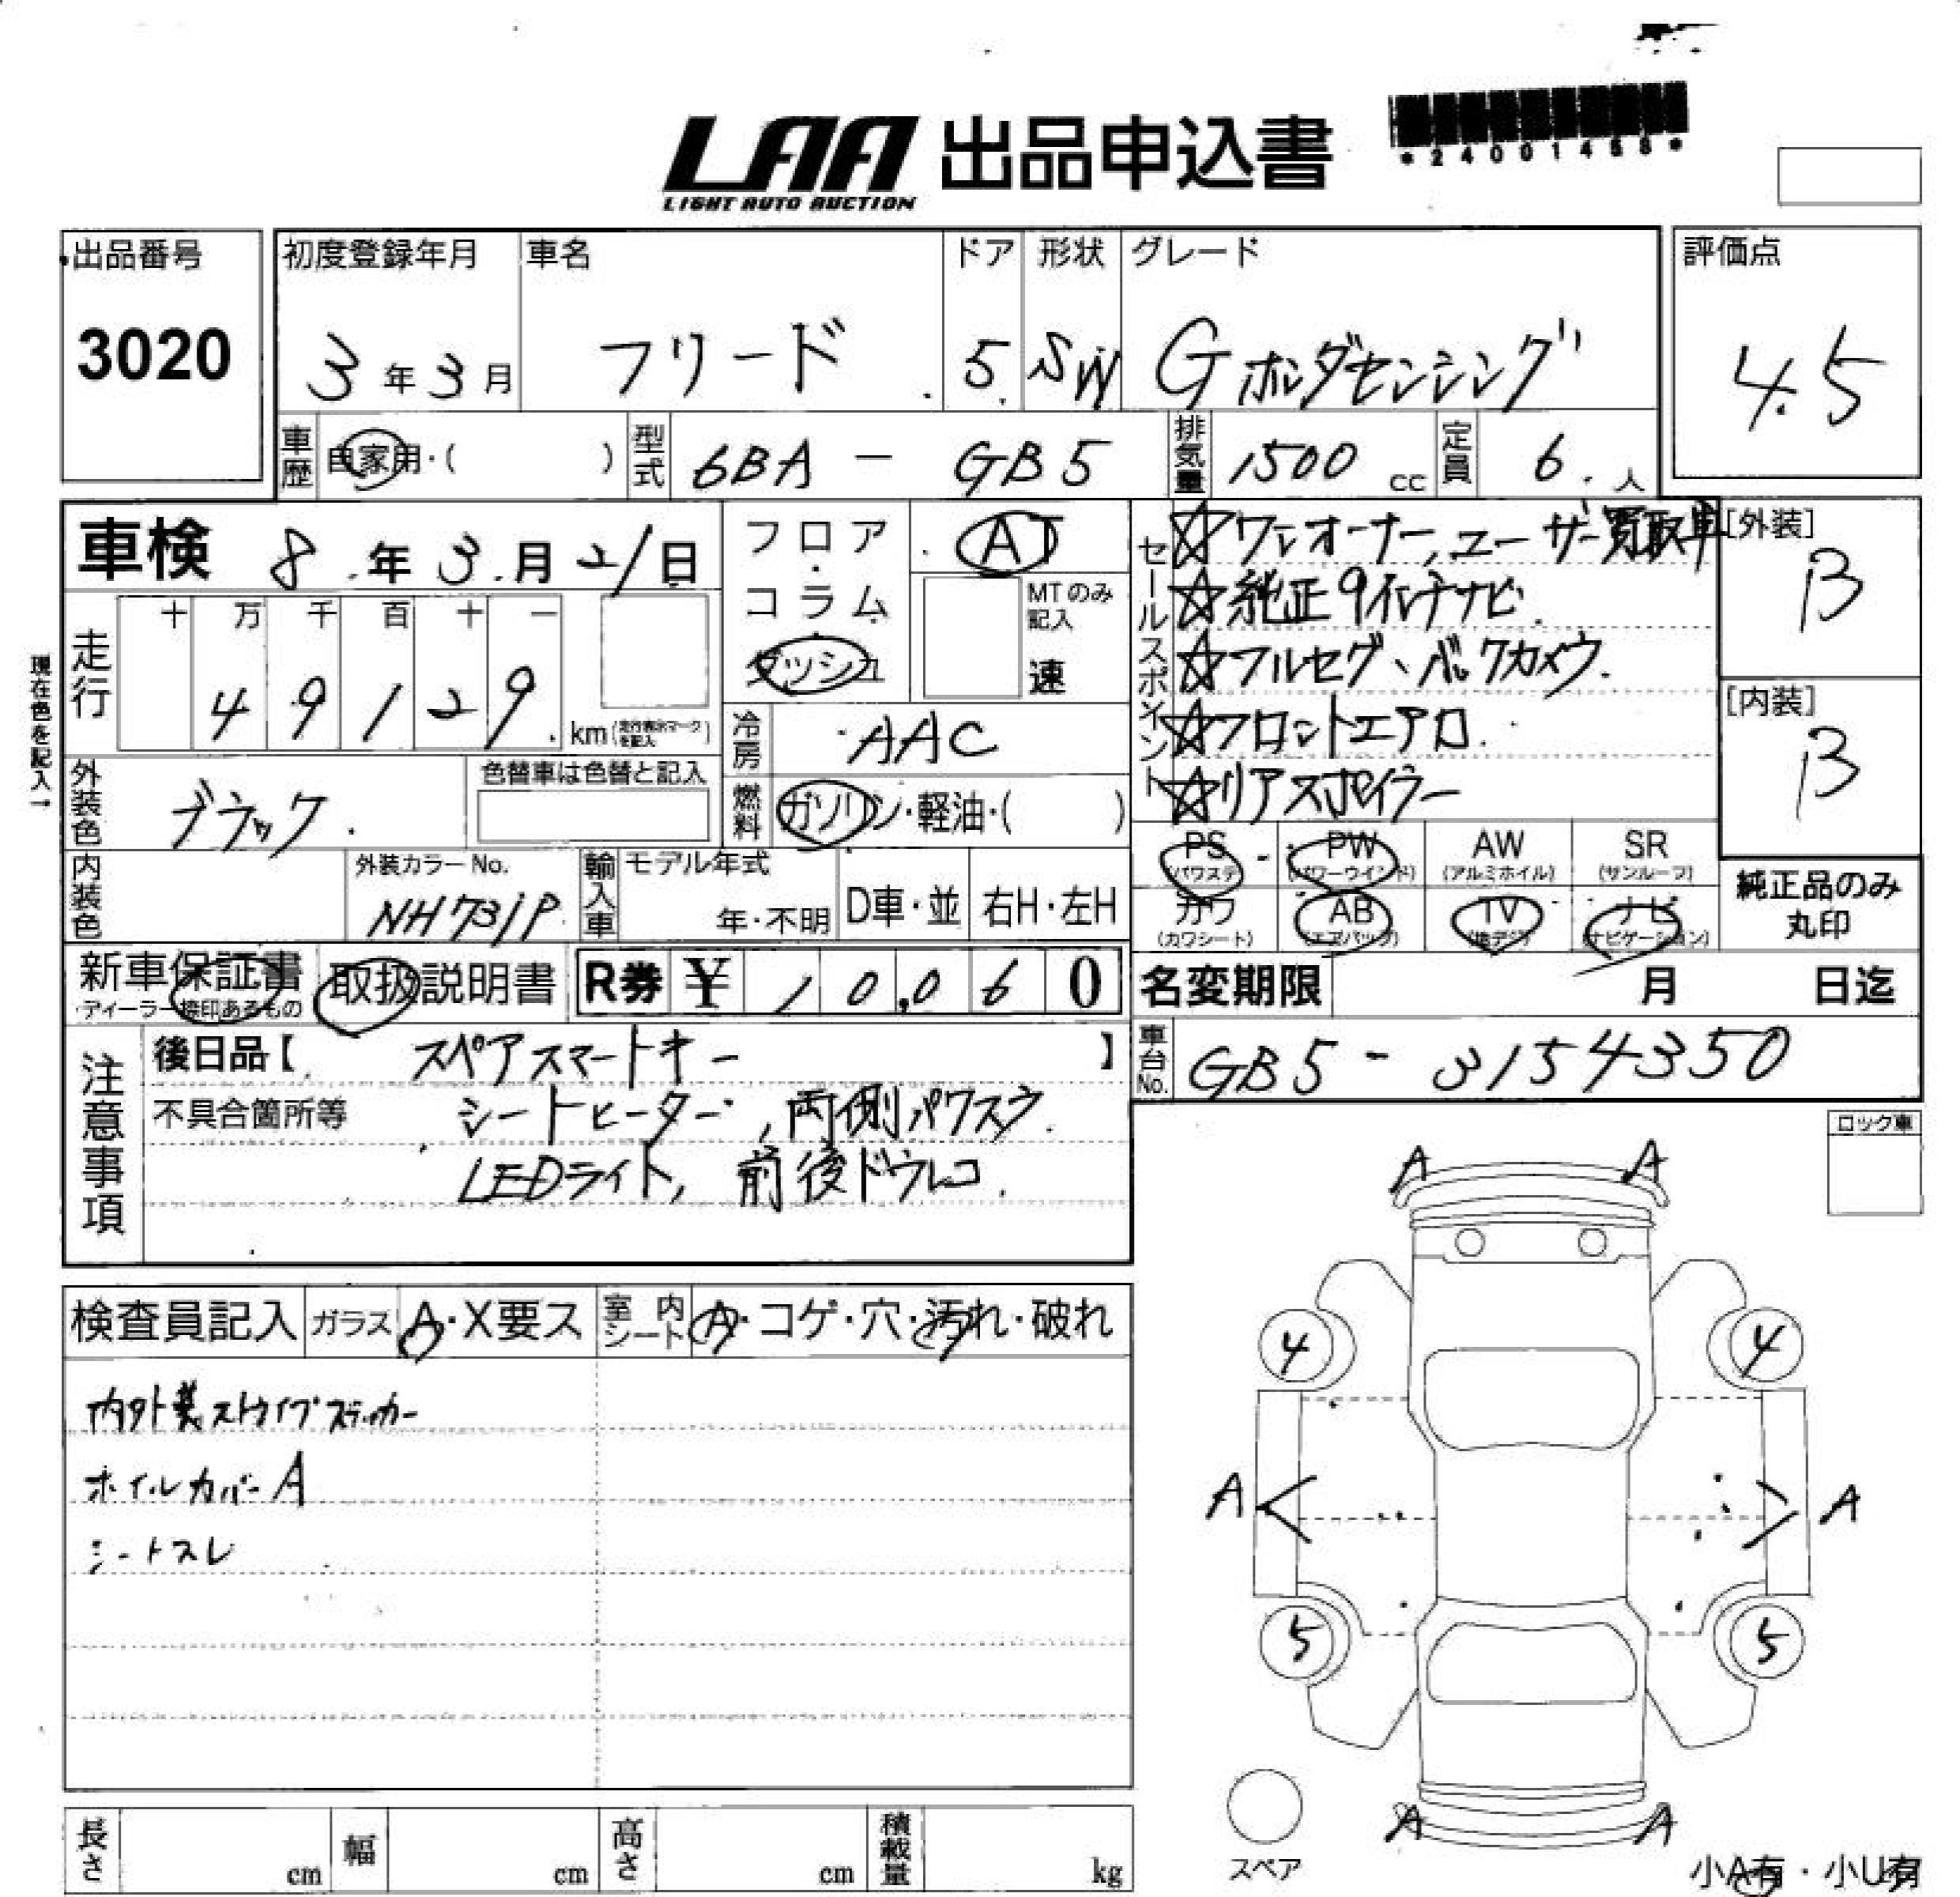 LAA 出品申込書
LIGHT AUTO AUCTION
*24001458*
出品番号
3020
初度登録年月
3年3月
車名
フリード
ドア
5
形状
SW
グレード
Gホンダセンシング
評価点
4.5
車歴 自家用・( )
型式 6BA - GB5
排気量 1500 cc
定員 6 人
車検 8年3月21日
フロア・コラム・ダッシュ
AT
MTのみ記入
速
現在色を記入→
走行
十 万 千 百 十 一
4 9 1 2 9
km(走行表示マークを記入)
冷房 AAC
燃料 ガソリン・軽油・( )
外装色 ブラック
色替車は色替と記入
内装色
外装カラーNo.
NH731P
輸入車
モデル年式
年・不明
D車・並
右H・左H
セールスポイント
☆ワンオーナー、ユーザー買取車
☆純正9インチナビ
☆フルセグ、バックカメラ
☆フロントエアロ
☆リアスポイラー
[外装]
B
[内装]
B
PS (パワステ)
PW (パワーウインド)
AW (アルミホイル)
SR (サンルーフ)
カワ (カワシート)
AB (エアバッグ)
TV (地デジ)
ナビ (ナビゲーション)
純正品のみ丸印
新車保証書
ディーラー捺印あるもの
取扱説明書
R券 ¥ 10,060
名変期限 月 日迄
車台No. GB5 - 3154350
注意事項
後日品【 スペアスマートキー 】
不具合箇所等 シートヒーター、両側パワスラ
LEDライト、前後ドラレコ
ロック車
検査員記入
ガラス A・X要ス
室内シート A・コゲ・穴・汚れ・破れ
内外装ストライプステッカー
ホイルカバーA
シートスレ
A A
4 4
A A
5 5
A A
スペア
小A有・小U有
長さ cm
幅 cm
高さ cm
積載量 kg